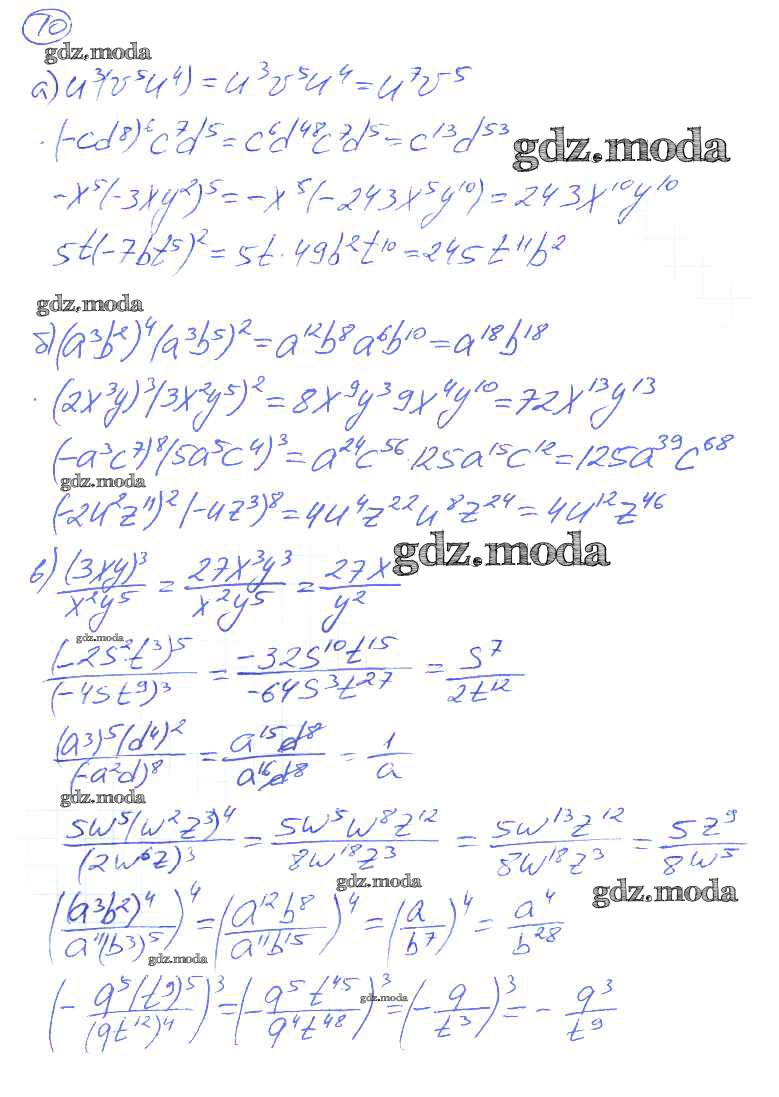 10
gdz.moda
а) u³(v⁵u⁴) = u³v⁵u⁴ = u⁷v⁵
(-cd⁸)⁶c⁷d⁵ = c⁶d⁴⁸c⁷d⁵ = c¹³d⁵³
gdz.moda
-x⁵(-3xy²)⁵ = -x⁵(-243x⁵y¹⁰) = 243x¹⁰y¹⁰
5t(-7bt⁵)² = 5t·49b²t¹⁰ = 245t¹¹b²
gdz.moda
б) (a³b²)⁴(a³b⁵)² = a¹²b⁸a⁶b¹⁰ = a¹⁸b¹⁸
(2x³y)³(3x²y⁵)² = 8x⁹y³9x⁴y¹⁰ = 72x¹³y¹³
(-a³c⁷)⁸(5a⁵c⁴)³ = a²⁴c⁵⁶·125a¹⁵c¹² = 125a³⁹c⁶⁸
gdz.moda
(-2u²z¹¹)²(-uz³)⁸ = 4u⁴z²²u⁸z²⁴ = 4u¹²z⁴⁶
gdz.moda
в) (3xy)³/x²y⁵ = 27x³y³/x²y⁵ = 27x/y²
gdz.moda
(-2s²t³)⁵/(-4st⁹)³ = -32s¹⁰t¹⁵/-64s³t²⁷ = s⁷/2t¹²
(a³)⁵(d⁴)²/(-a²d)⁸ = a¹⁵d⁸/a¹⁶d⁸ = 1/a
gdz.moda
5w⁵(w²z³)⁴/(2w⁶z)³ = 5w⁵w⁸z¹²/8w¹⁸z³ = 5w¹³z¹²/8w¹⁸z³ = 5z⁹/8w⁵
gdz.moda
gdz.moda
((a³b²)⁴/a¹¹(b³)⁵)⁴ = (a¹²b⁸/a¹¹b¹⁵)⁴ = (a/b⁷)⁴ = a⁴/b²⁸
gdz.moda
(-q⁵(t⁹)⁵/(qt¹²)⁴)³ = (-q⁵t⁴⁵/q⁴t⁴⁸)³ = (-q/t³)³ = -q³/t⁹
gdz.moda